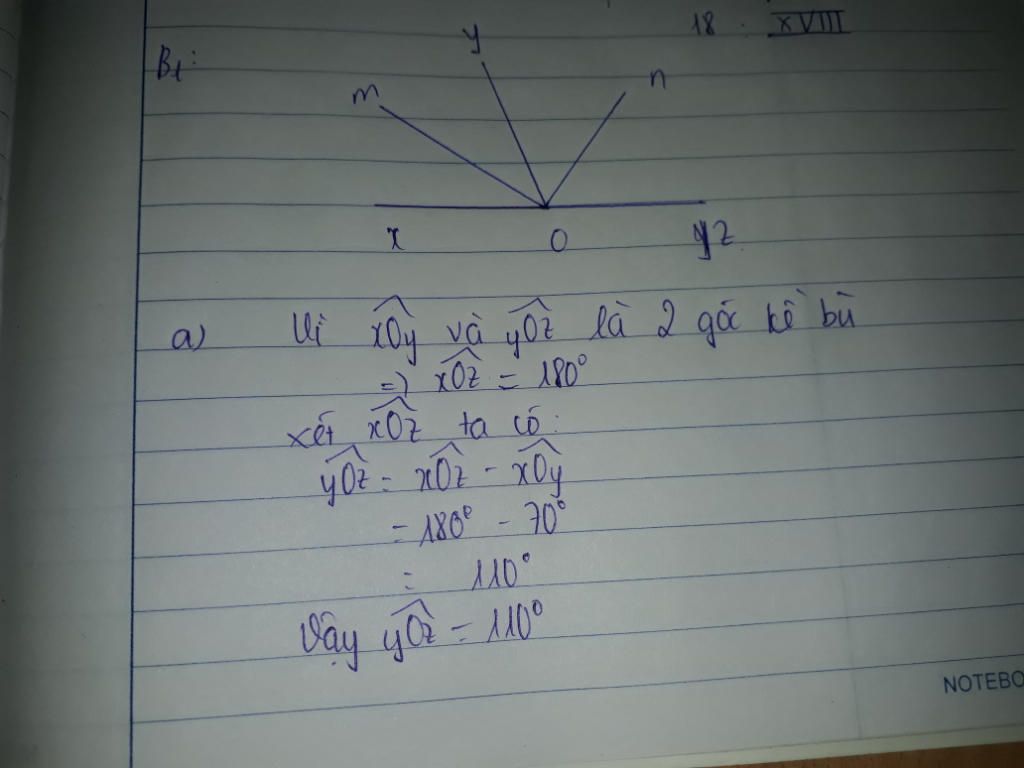 18 XVIII
B1:
y
m
n
x
O
z
a) Vì xOy và yOz là 2 góc kề bù
=) xOz = 180°
xét xOz ta có:
yOz = xOz - xOy
= 180° - 70°
= 110°
Vậy yOz = 110°
NOTEBO